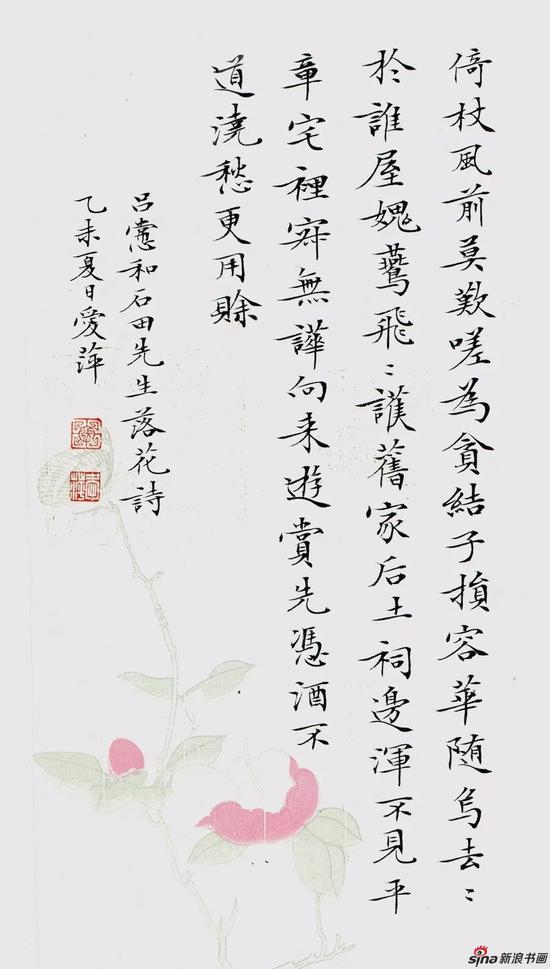 倚杖風前莫歎嗟為貪結子損容華随烏去〻
於誰屋媿鷰飛〻護舊家后土祠邊渾不見平
章宅裡寂無譁向来遊賞先憑酒不
道澆愁更用賖
吕㦂和石田先生落花詩
乙未夏日愛萍
sina新浪书画